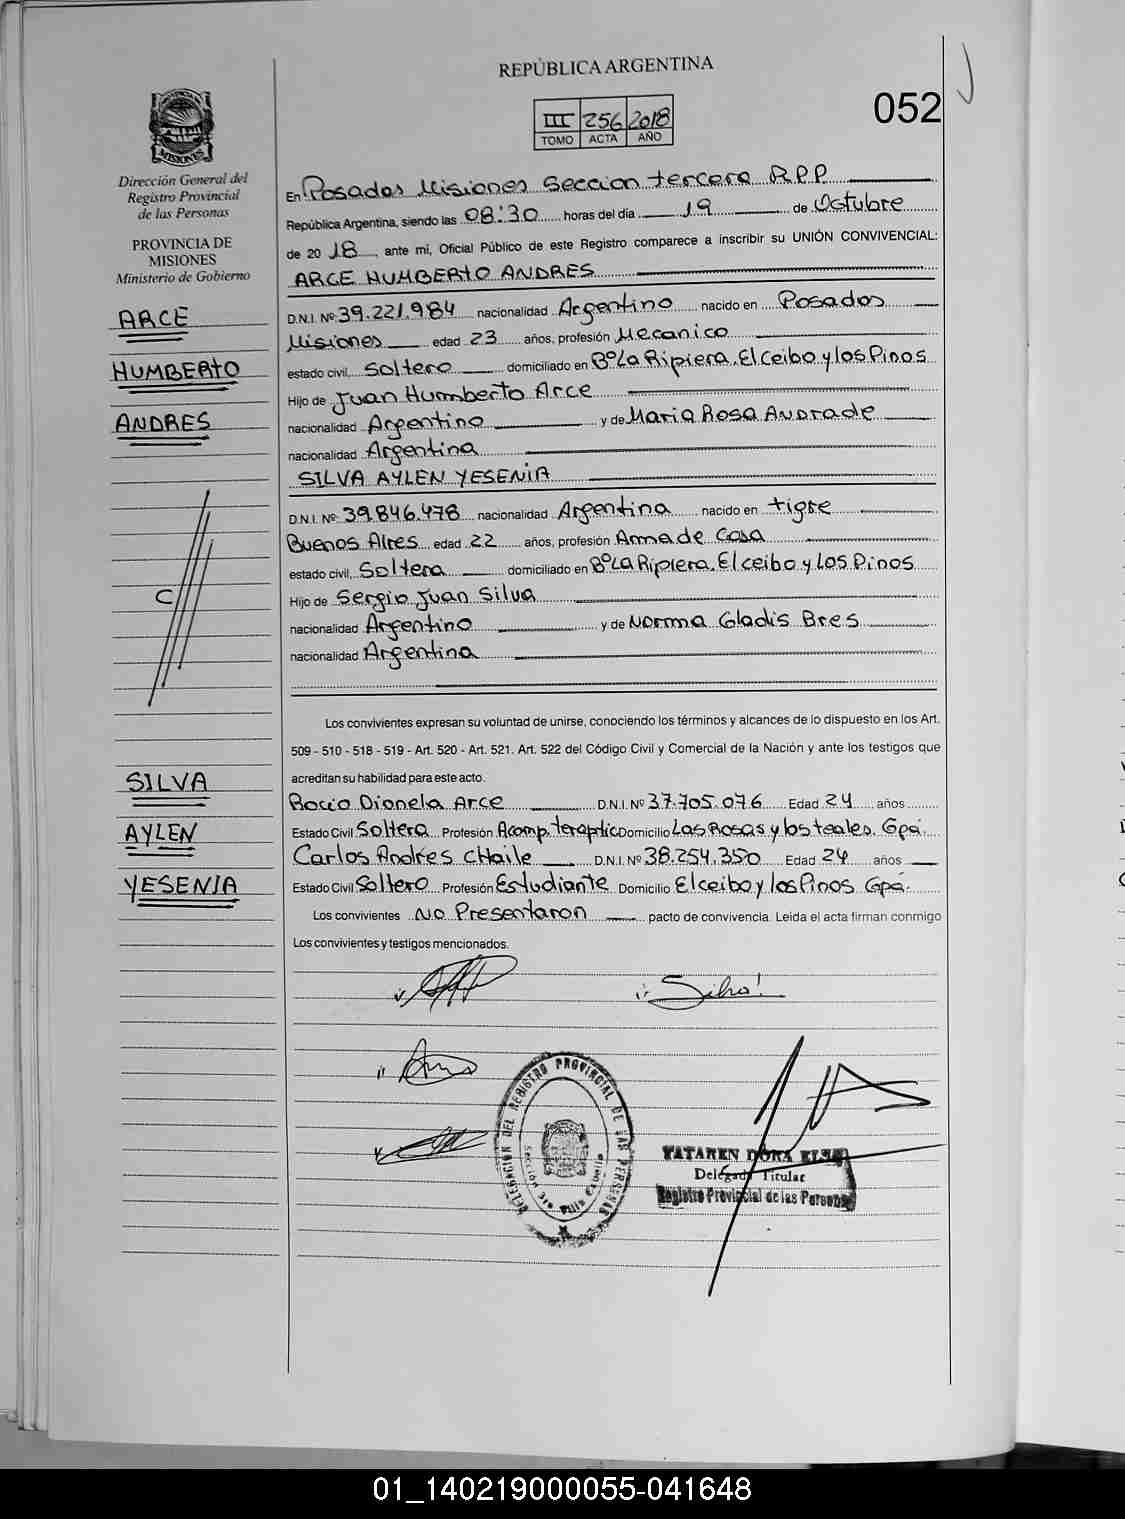 REPÚBLICA ARGENTINA
052
III 256 2018
TOMO ACTA AÑO
PROVINCIA DE
MISIONES
Dirección General del
Registro Provincial
de las Personas
PROVINCIA DE
MISIONES
Ministerio de Gobierno
ARCE
HUMBERTO
ANDRES
C
SILVA
AYLEN
YESENIA
En Posadas Misiones Seccion tercera R.P.P
República Argentina, siendo las 08:30 horas del día 19 de Octubre
de 2018, ante mi, Oficial Público de este Registro comparece a inscribir su UNIÓN CONVIVENCIAL:
ARCE HUMBERTO ANDRES
D.N.I. Nº 39.221.984 nacionalidad Argentino nacido en Posadas
Misiones edad 23 años, profesión Mecanico
estado civil, Soltero domiciliado en Bº La Ripiera. El Ceibo y los Pinos
Hijo de Juan Humberto Arce
nacionalidad Argentino y de Maria Rosa Andrade
nacionalidad Argentina
SILVA AYLEN YESENIA
D.N.I. Nº 39.846.478 nacionalidad Argentina nacido en tigre
Buenos Aires edad 22 años, profesión Ama de Casa
estado civil, Soltera domiciliado en Bº La Ripiera. El ceibo y Los Pinos
Hijo de Sergio Juan Silva
nacionalidad Argentino y de Norma Gladis Bres
nacionalidad Argentina
Los convivientes expresan su voluntad de unirse, conociendo los términos y alcances de lo dispuesto en los Art.
509 - 510 - 518 - 519 - Art. 520 - Art. 521. Art. 522 del Código Civil y Comercial de la Nación y ante los testigos que
acreditan su habilidad para este acto.
Rocio Dionela Arce D.N.I. Nº 37.705.076 Edad 24 años
Estado Civil Soltera Profesión Acomp. teraptic Domicilio Las Rosas y los teales. Gpá.
Carlos Andrés CHaile D.N.I. Nº 38.254.350 Edad 24 años
Estado Civil Soltero Profesión Estudiante Domicilio El ceibo y los Pinos Gpá.
Los convivientes No Presentaron pacto de convivencia. Leida el acta firman conmigo
Los convivientes y testigos mencionados.
Silva
DELEGACION DEL REGISTRO PROVINCIAL DE LAS PERSONAS
Sección 3ra Villa Cabello
TATAREN DORA ELSA
Delegada Titular
Registro Provincial de las Personas
01_140219000055-041648